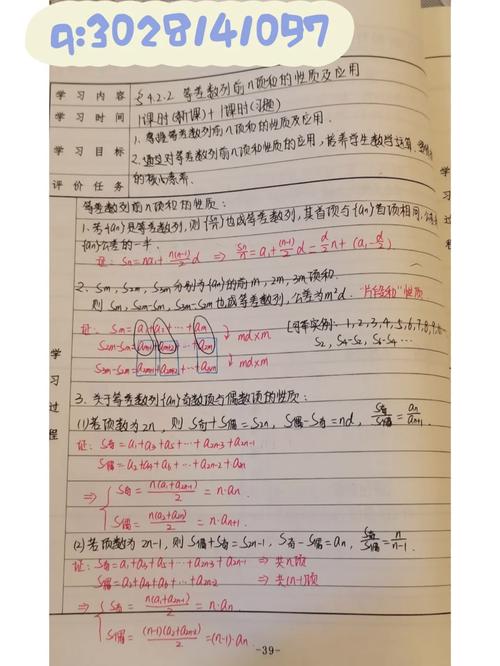 q:3028141057
学习内容 §4.2.2 等差数列前n项和的性质及应用
学习时间 1课时(新课)+1课时(习题)
学习目标 1. 掌握等差数列前n项和的性质及应用.
2. 通过对等差数列前n项和性质的应用,培养学生数学运算、
的核心素养.
评价任务
学习过程
等差数列前n项和的性质:
1. 若{an}是等差数列,则{Sn/n}也成等差数列,其首项与{an}首项相同,公差
{an}公差的一半.
证: Sn=na1+n(n-1)/2 d ⇒ Sn/n=a1+(n-1)/2 d=d/2 n+(a1-d/2)
2. Sm, S2m, S3m分别为{an}的前m, 2m, 3m项和.
则 Sm, S2m-Sm, S3m-S2m也成等差数列,公差为m²d. "片段和"性质
证: Sm=a1+a2+…+am
S2m-Sm=am+1+am+2+…+a2m ↓ md×m
S3m-S2m=a2m+1+a2m+2+…+a3m ↓ md×m
实例: 1,2,3,4,5,6,7,8,9,
S2, S4-S2, S6-S4…
3. 关于等差数列{an}奇数项与偶数项的性质:
(1)若项数为2n, 则S奇+S偶=S2n, S偶-S奇=nd, S奇/S偶=an/an+1.
证: S奇=a1+a3+a5+…+a2n-3+a2n-1
S偶=a2+a4+a6+…+a2n-2+a2n
⇒ { S奇=n(a1+a2n-1)/2=n·an
S偶=n(a2+a2n)/2=n·an+1.
(2)若项数为2n-1, 则S偶+S奇=S2n-1, S奇-S偶=an, S奇/S偶=n/n-1.
证: S奇=a1+a3+a5+…+a2n-3+a2n-1 ⇒ 共n项
S偶=a2+a4+a6+…+a2n-2 ⇒ 共(n-1)项
⇒ { S奇=n(a1+a2n-1)/2=n·an
S偶=(n-1)(a2+a2n-2)/2=(n-1)·an
-39-
学习过程